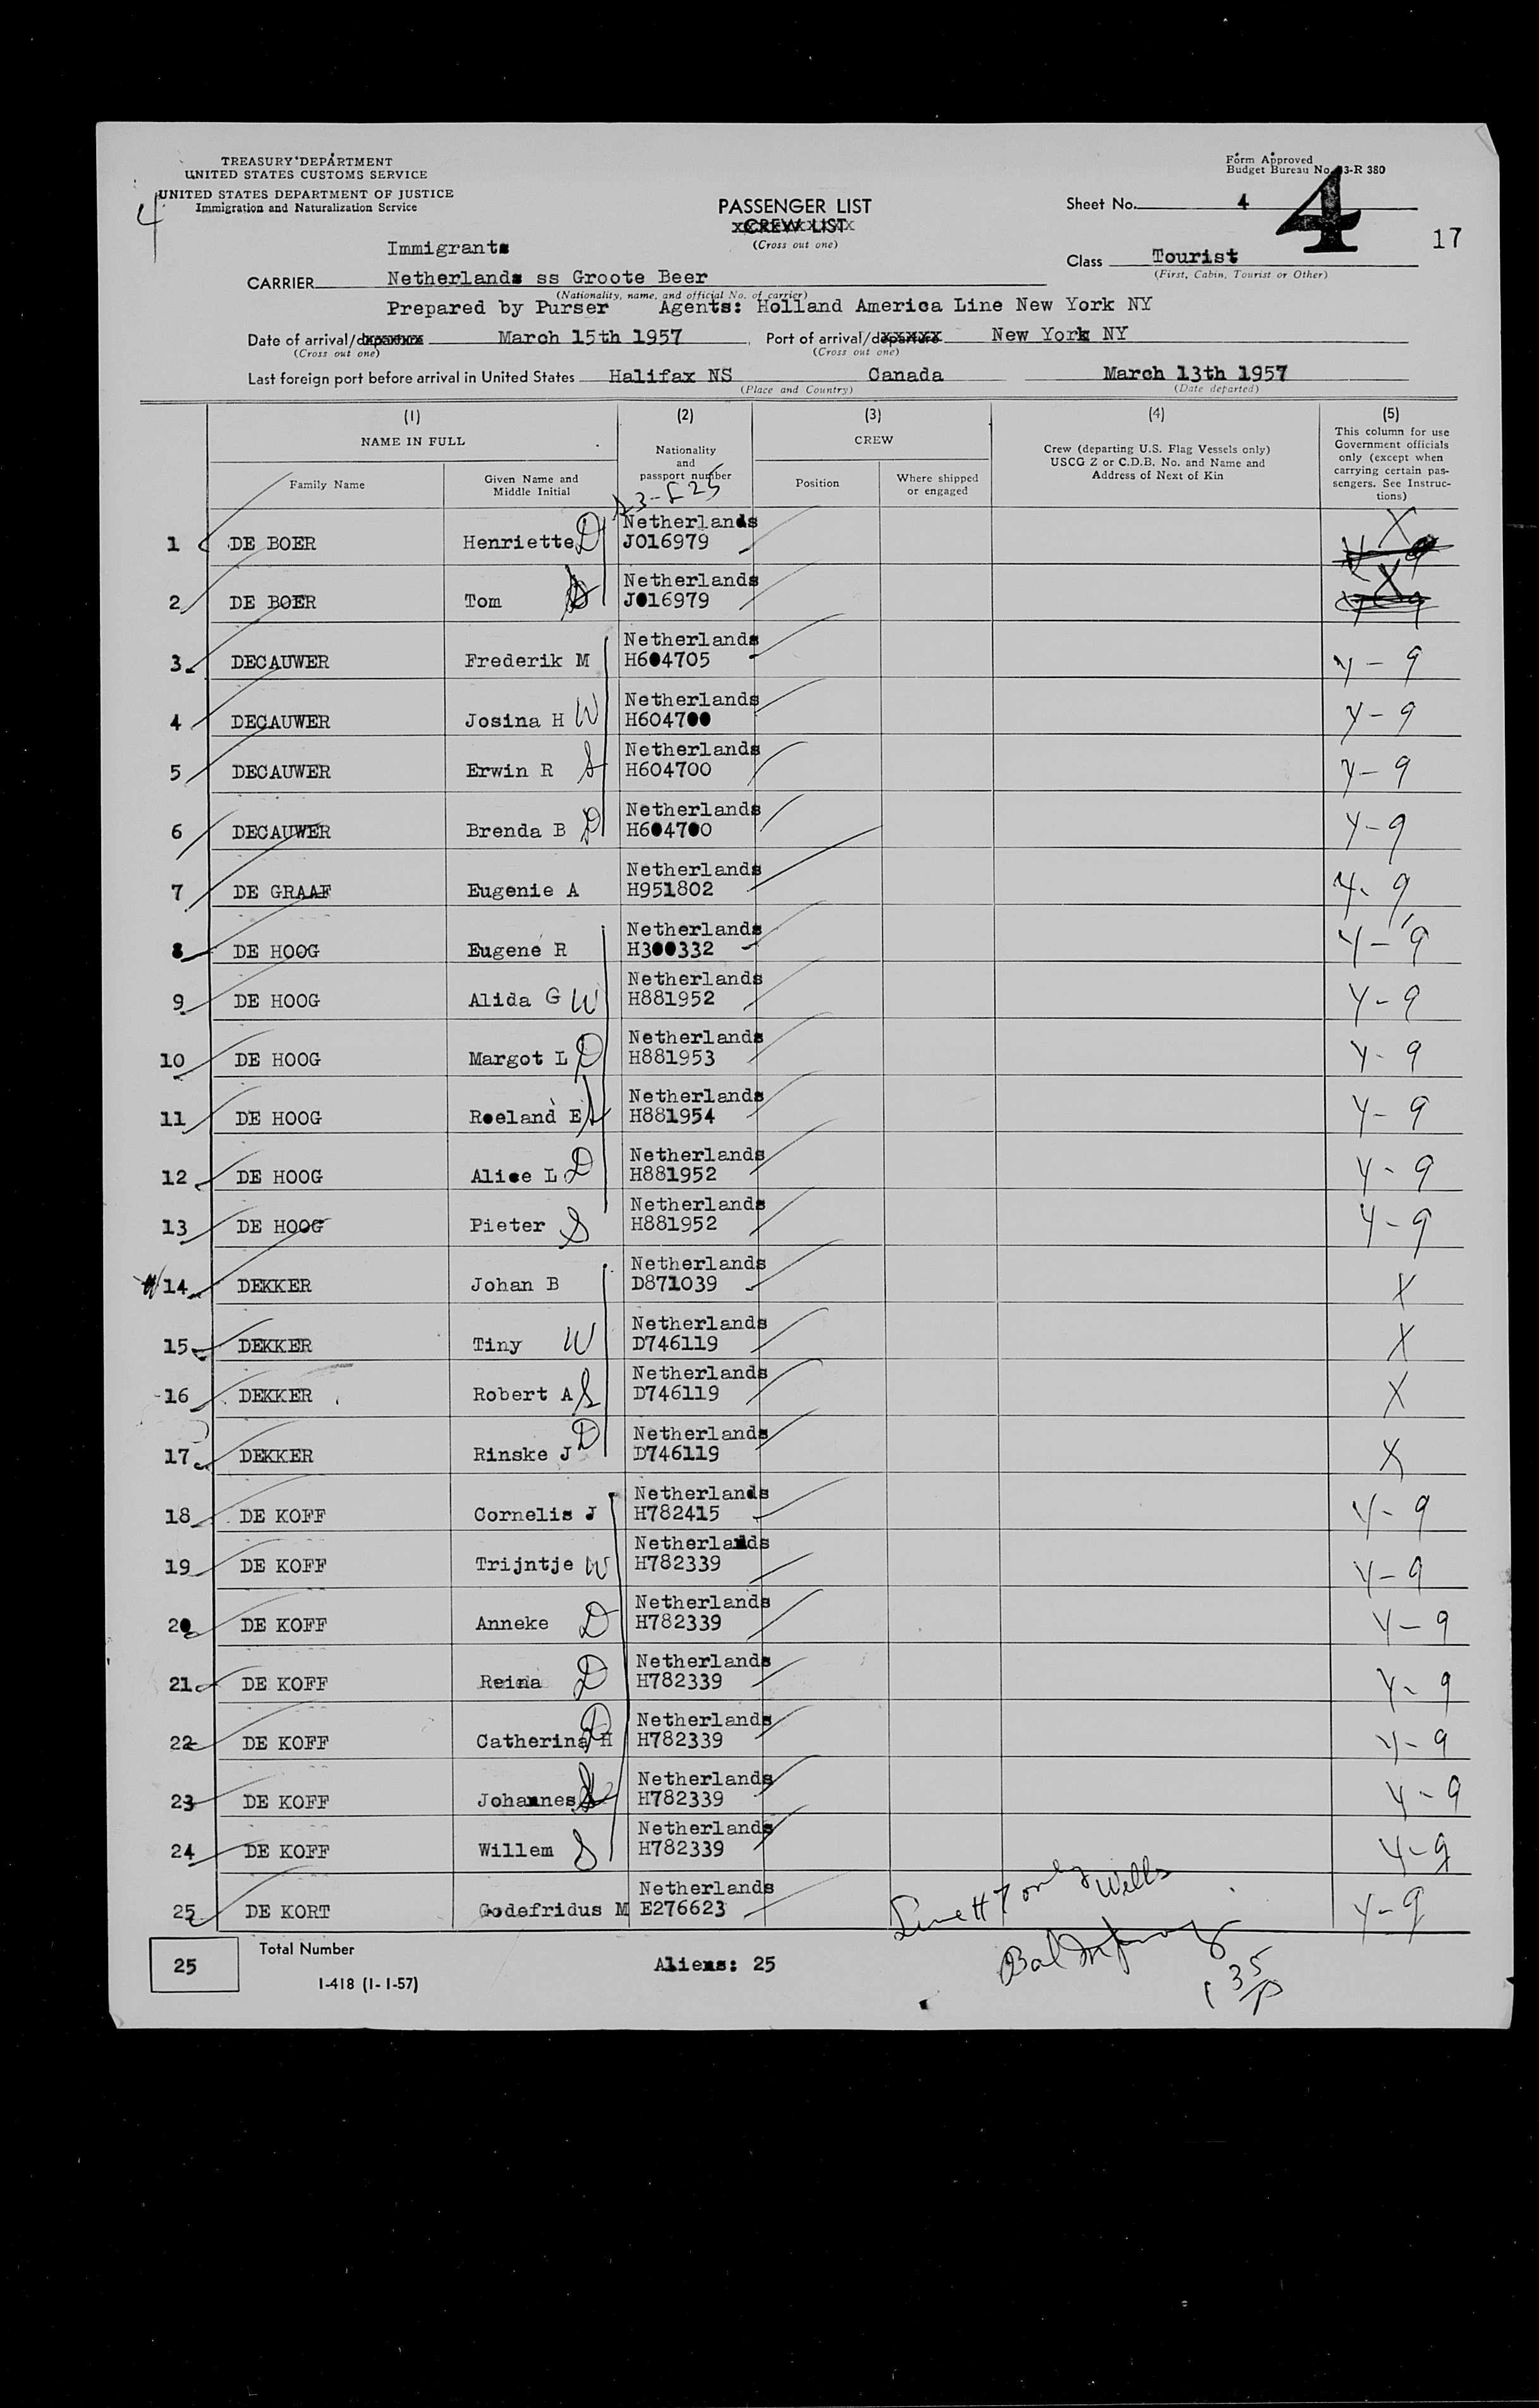 TREASURY DEPARTMENT
UNITED STATES CUSTOMS SERVICE
UNITED STATES DEPARTMENT OF JUSTICE
Immigration and Naturalization Service
4
Form Approved
Budget Bureau No. 43-R 380
PASSENGER LIST
CREW LIST
(Cross out one)
Sheet No. 4
4
17
Class Tourist
(First, Cabin, Tourist or Other)
Immigrants
CARRIER Netherlands ss Groote Beer
(Nationality, name, and official No. of carrier)
Prepared by Purser Agents: Holland America Line New York NY
Date of arrival/departure March 15th 1957, Port of arrival/departure New York NY
(Cross out one) (Cross out one)
Last foreign port before arrival in United States Halifax NS Canada March 13th 1957
(Place and Country) (Date departed)
(1) (2) (3) (4) (5)
NAME IN FULL
Family Name
Given Name and
Middle Initial
Nationality
and
passport number
CREW
Position
Where shipped
or engaged
Crew (departing U.S. Flag Vessels only)
USCG Z or C.D.B. No. and Name and
Address of Next of Kin
This column for use
Government officials
only (except when
carrying certain pas-
sengers. See Instruc-
tions)
Netherlands X
1 DE BOER Henriette D J016979
Netherlands X
2 DE BOER Tom S J016979
Netherlands
3 DECAUWER Frederik M H604705 Y-9
Netherlands
4 DECAUWER Josina H W H604700 Y-9
Netherlands
5 DECAUWER Erwin R S H604700 Y-9
Netherlands
6 DECAUWER Brenda B D H604700 Y-9
Netherlands
7 DE GRAAF Eugenie A H951802 Y-9
Netherlands
8 DE HOOG Eugene R H300332 Y-9
Netherlands
9 DE HOOG Alida G W H881952 Y-9
Netherlands
10 DE HOOG Margot L D H881953 Y-9
Netherlands
11 DE HOOG Roeland E S H881954 Y-9
Netherlands
12 DE HOOG Alice L D H881952 Y-9
Netherlands
13 DE HOOG Pieter S H881952 Y-9
Netherlands
14 DEKKER Johan B D871039 X
Netherlands
15 DEKKER Tiny W D746119 X
Netherlands
16 DEKKER Robert A S D746119 X
Netherlands
17 DEKKER Rinske J D D746119 X
Netherlands
18 DE KOFF Cornelis J H782415 Y-9
Netherlands
19 DE KOFF Trijntje W H782339 Y-9
Netherlands
20 DE KOFF Anneke D H782339 Y-9
Netherlands
21 DE KOFF Reina D H782339 Y-9
Netherlands
22 DE KOFF Catherina H D H782339 Y-9
Netherlands
23 DE KOFF Johannes S H782339 Y-9
Netherlands
24 DE KOFF Willem S H782339 Y-9
Netherlands
25 DE KORT Godefridus M E276623 Y-9
25 Total Number
Aliens: 25
I-418 (1-1-57)
only Wells